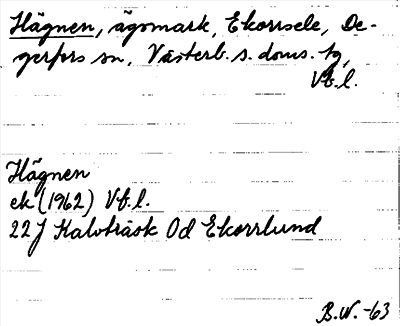 Hägnen, ägomark, Ekorrsele, De-
gerfors sn, Västerb. s. doms. tg,
Vb. l.
Hägnen
ek (1962) Vb. l.
22J Kalvträsk 0d Ekorrlund
B.W. -63